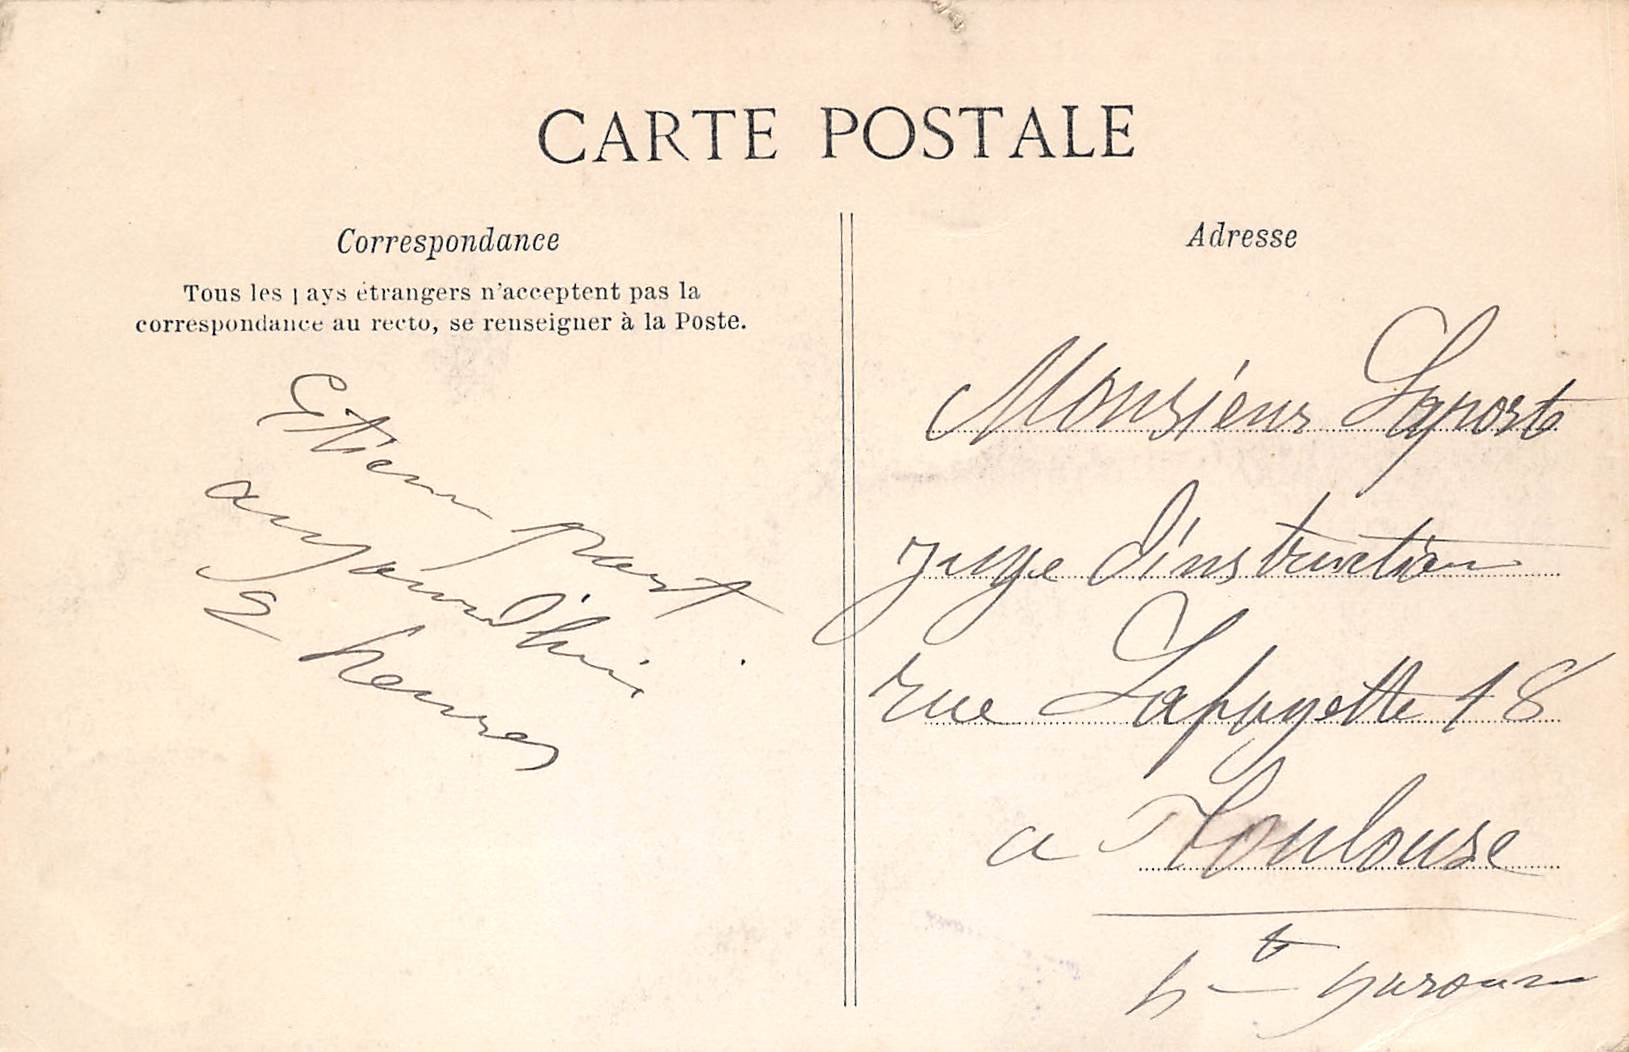 CARTE POSTALE
Correspondance
Tous les pays étrangers n'acceptent pas la
correspondance au recto, se renseigner à la Poste.
Etienne part
aujourd'hui
2 heures
Adresse
Monsieur Laporte
juge d'instruction
rue Lafayette 18
a Toulouse
hte garonne